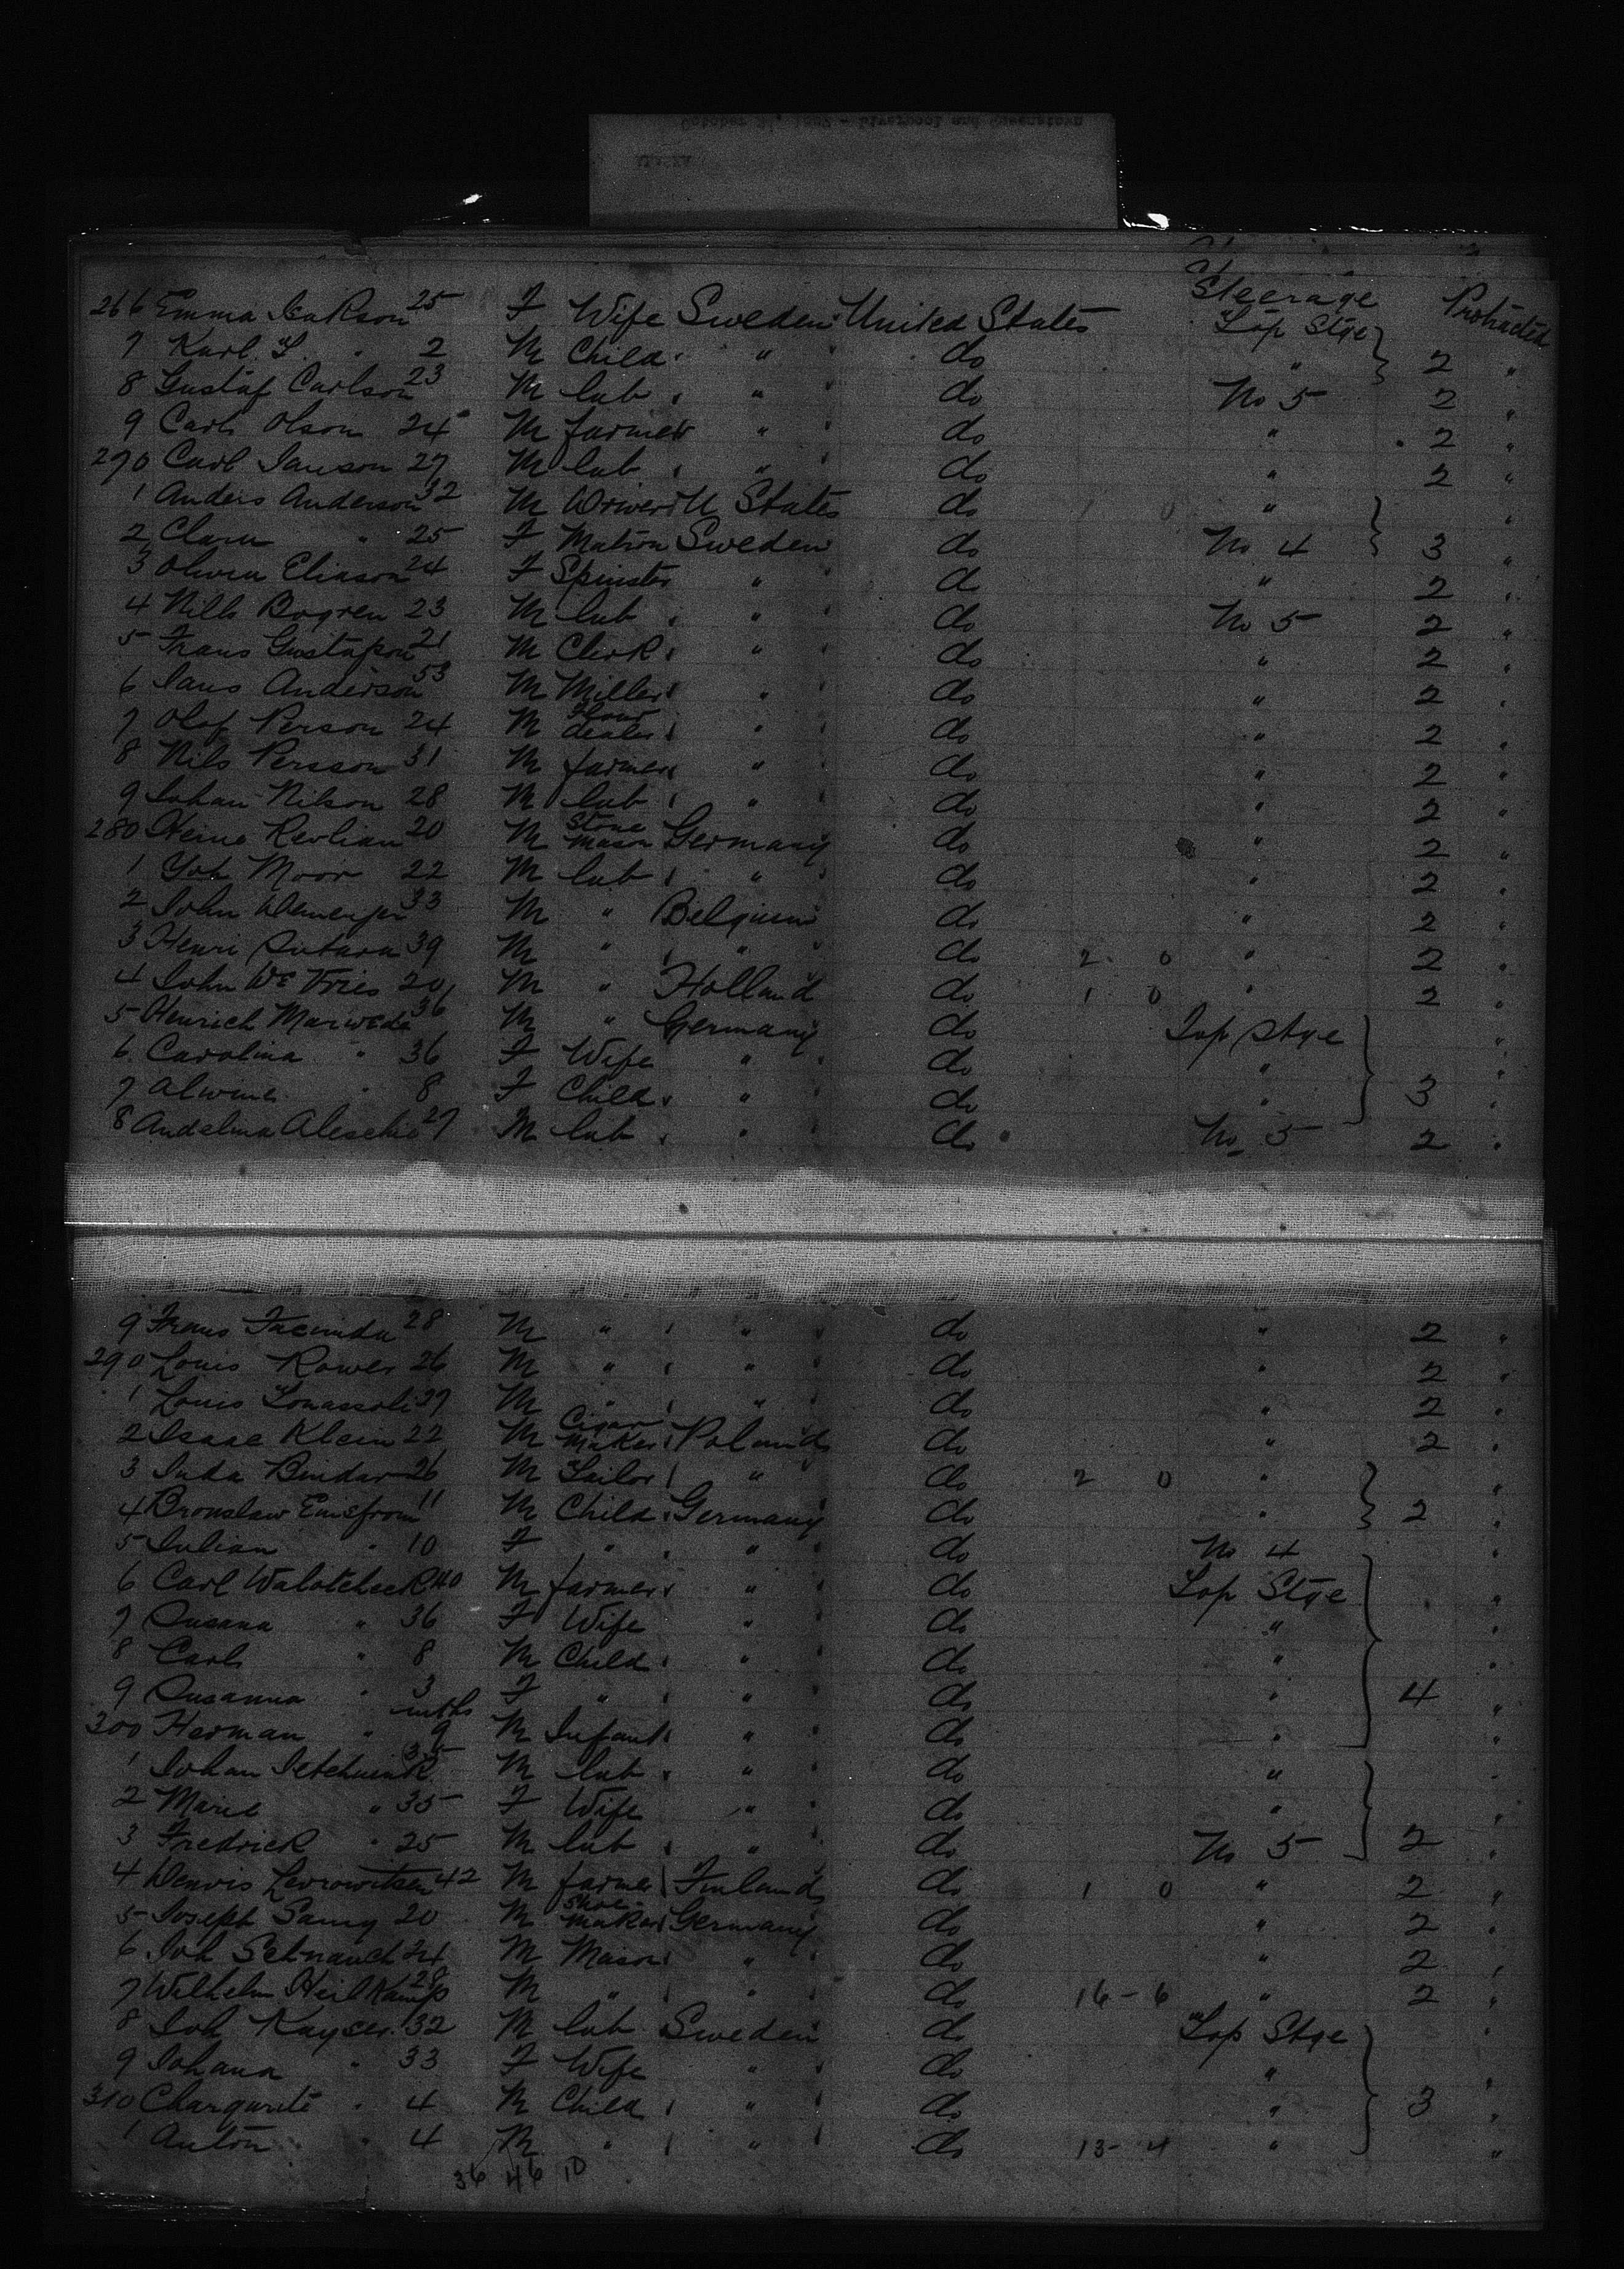 Steerage
266 Emma Isakson 25 F Wife Sweden United States Top Stge Protracted
7 Karl. G. " 2 M Child " do " 2 "
8 Gustaf Carlson 23 M lab " do No 5 2 "
9 Carl Olson 24 M farmer " do " 2 "
270 Carl Janson 27 M lab " do " 2 "
1 Anders Anderson 32 M U States do 1 0 " "
2 Clara " 25 F Matron Sweden do No 4 3 "
3 Olivia Eliason 24 F Spinster " do " 2 "
4 Nills Bogren 23 M lab " do No 5 2 "
5 Frans Gustafson 21 M Clerk " do " 2 "
6 Jans Anderson 53 M Miller " do " 2 "
7 Olof Person 24 M dealer " do " 2 "
8 Nils Persson 31 M farmer " do " 2 "
9 Johan Nilson 28 M lab " do " 2 "
280 Heine 20 M Stone Mason Germany do " 2 "
1 Joh Moor 22 M lab " do " 2 "
2 John 33 M " Belgium do " 2 "
3 Henri 39 M " " do 2 0 " 2 "
4 John De Vries 20 M " Holland do 1 0 " 2 "
5 Henrich Marwede 36 M " Germany do Top Stge "
6 Carolina " 36 F Wife " do " "
7 Alwine " 8 F Child " do " 3 "
8 Andelma Aleschio 27 M lab " do No 5 2 "
9 Frans Facunda 28 M " " do " 2 "
290 Louis Rower 26 M " " do " 2 "
1 Louis 39 M " " do " 2 "
2 Isaac Klein 22 M Cigar Maker Poland do " 2 "
3 Juda Bindar 26 M Tailor " do 2 0 " "
4 Bronslaw 11 M Child Germany do " 2 "
5 Julian " 10 F " " do No 4 "
6 Carl Walotcheck 40 M farmer " do Top Stge "
7 Susana " 36 F Wife " do " "
8 Carl " 8 M Child " do " "
9 Susanna " 3 F " " do " 4 "
mths
300 Herman " 9 M Infant " do " "
1 Johan 35 M lab " do " "
2 Marie " 35 F Wife " do " "
3 Fredrick " 25 M lab " do No 5 2 "
4 42 M farmer Finland do 1 0 " 2 "
5 Joseph Samy 20 M Shoe Maker Germany do " 2 "
6 Joh Schnauch 24 M Mason " do " 2 "
7 Wilhelm Heilkamp 28 M " " do 16-6 " 2 "
8 Joh Kayser 32 M lab Sweden do Top Stge "
9 Johana " 33 F Wife " do " "
310 " 4 M Child " do " 3 "
1 Anton " 4 M " " do 13-4 " "
36 46 10